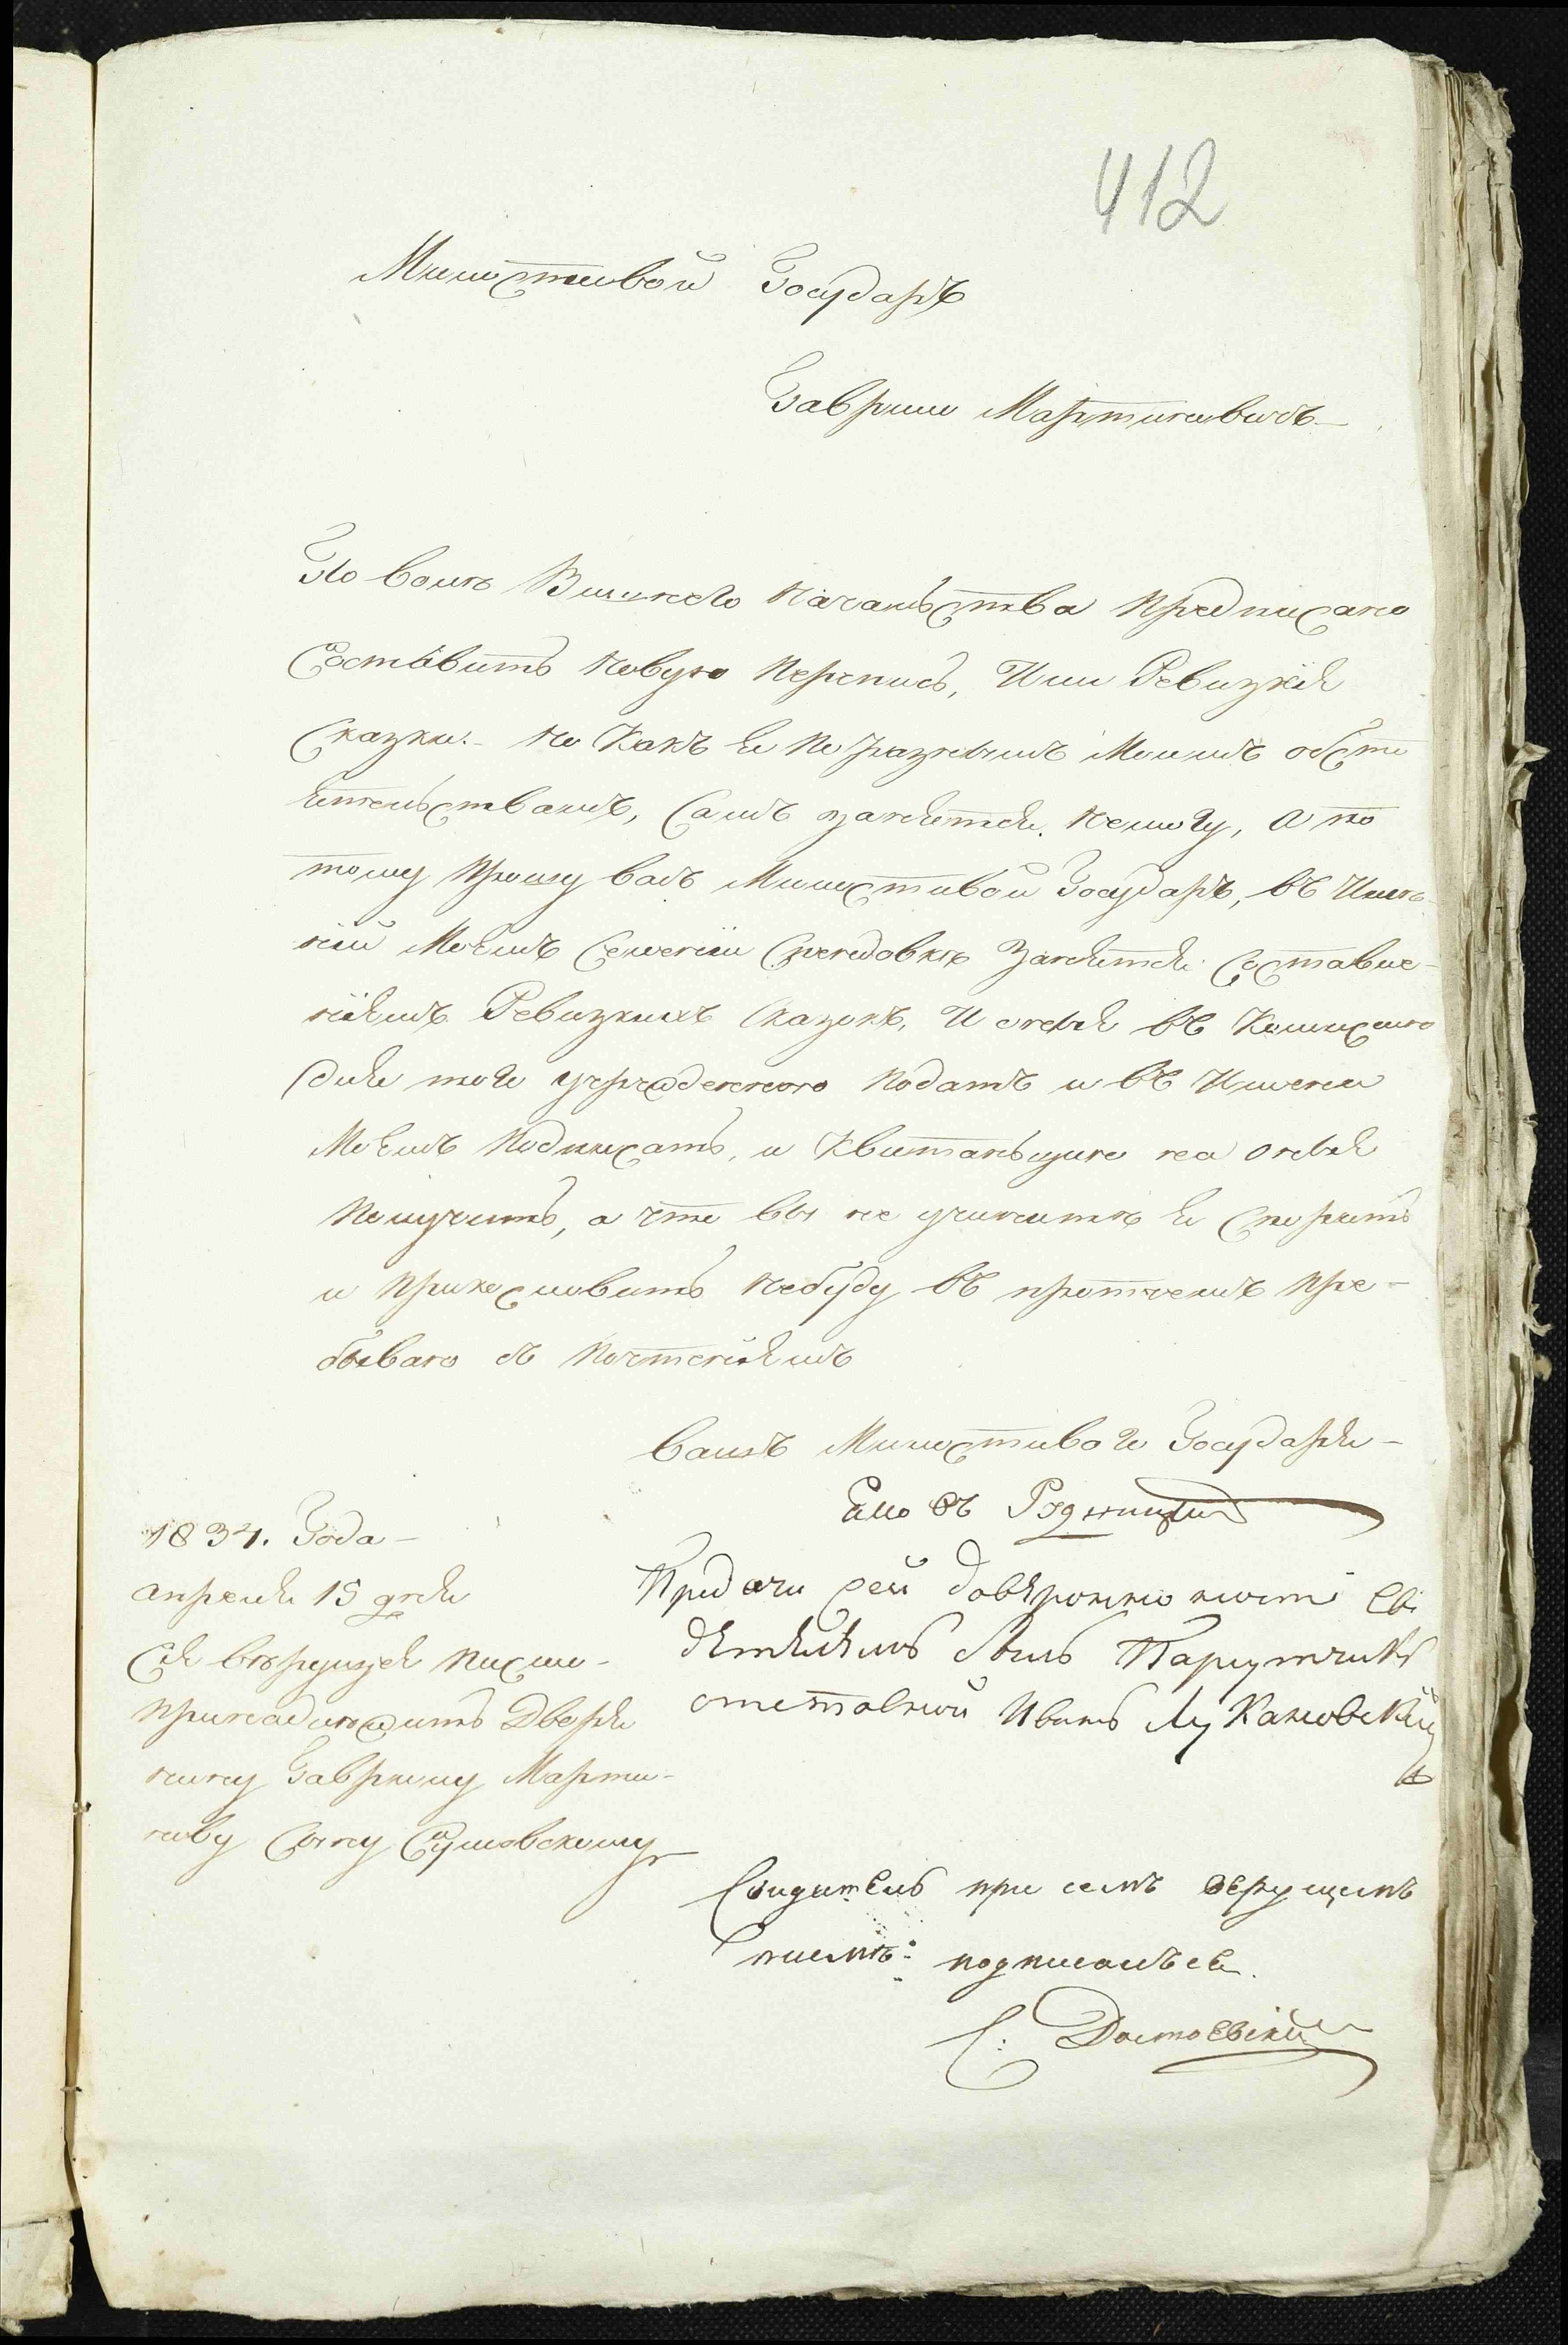 412
Милостивой Государь
Гаврил Мартиновичъ
По воле Вишнего Начальства предписано
Составить новую Перепись, Или Ревизкія
Сказки. но Какъ я по разнымъ Моимъ обсто
ятельствамъ, Самъ занятся немогу, а по
тому прошу васъ Милостивой Государь, въ Име
ніи Моемъ Селеніи занятся Составле-
ніемъ Ревизкихъ Сказокъ, И оныя въ Комисию
для того учрежденною подать и въ Имени
Моемъ Подписать, и Квитанцию на оныя
Получить, а что вы не учините я Спорить
и прикословить небуду въ протчемъ пре-
бываю съ Почтеніемъ
вашъ Милостиваго Государя
1834. Года
апреля 15 дня
Сія вѣрующая писмо
принадлежитъ Дворя
нину Гаврилу Марти-
нову Сыну
Придачи сей довѣронности Сві
дѣтелемъ былъ Паручикъ
отставной Иванъ
Свидитель при семъ верующемъ
писмѣ подписалъся
С: Достоевскій